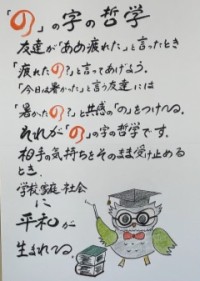 「の」の字の哲学
友達が「ああ疲れた」と言ったとき
「疲れたの?」と言ってあげよう。
「今日は暑かった」と言う友達には
「暑かったの?」と共感の「の」をつける。
それが「の」の字の哲学です。
相手の気持ちをそのまま受け止める
とき、
学校家庭社会
に
平和が
生まれてる。